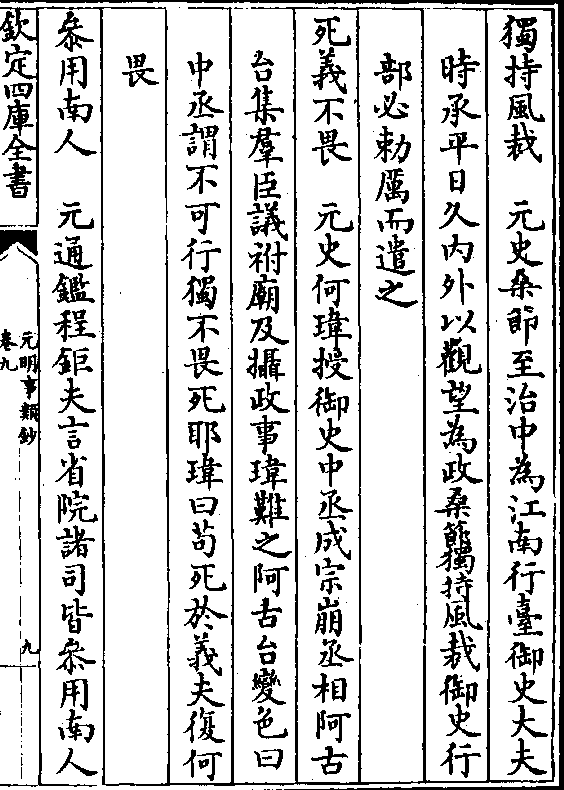 獨持風裁　元史桑節至治中為江南行臺御史大夫
時承平日久内外以觀望為政桑節獨持風裁御史行
部必勅厲而遣之
死義不畏　元史何瑋授御史中丞成宗崩丞相阿古
台集羣臣議祔廟及攝政事瑋難之阿古台變色曰
中丞謂不可行獨不畏死耶瑋曰苟死於義夫復何
畏
叅用南人　元通鑑程鉅夫言省院諸司皆叅用南人
欽定四庫全書
元明事類鈔
卷九
九